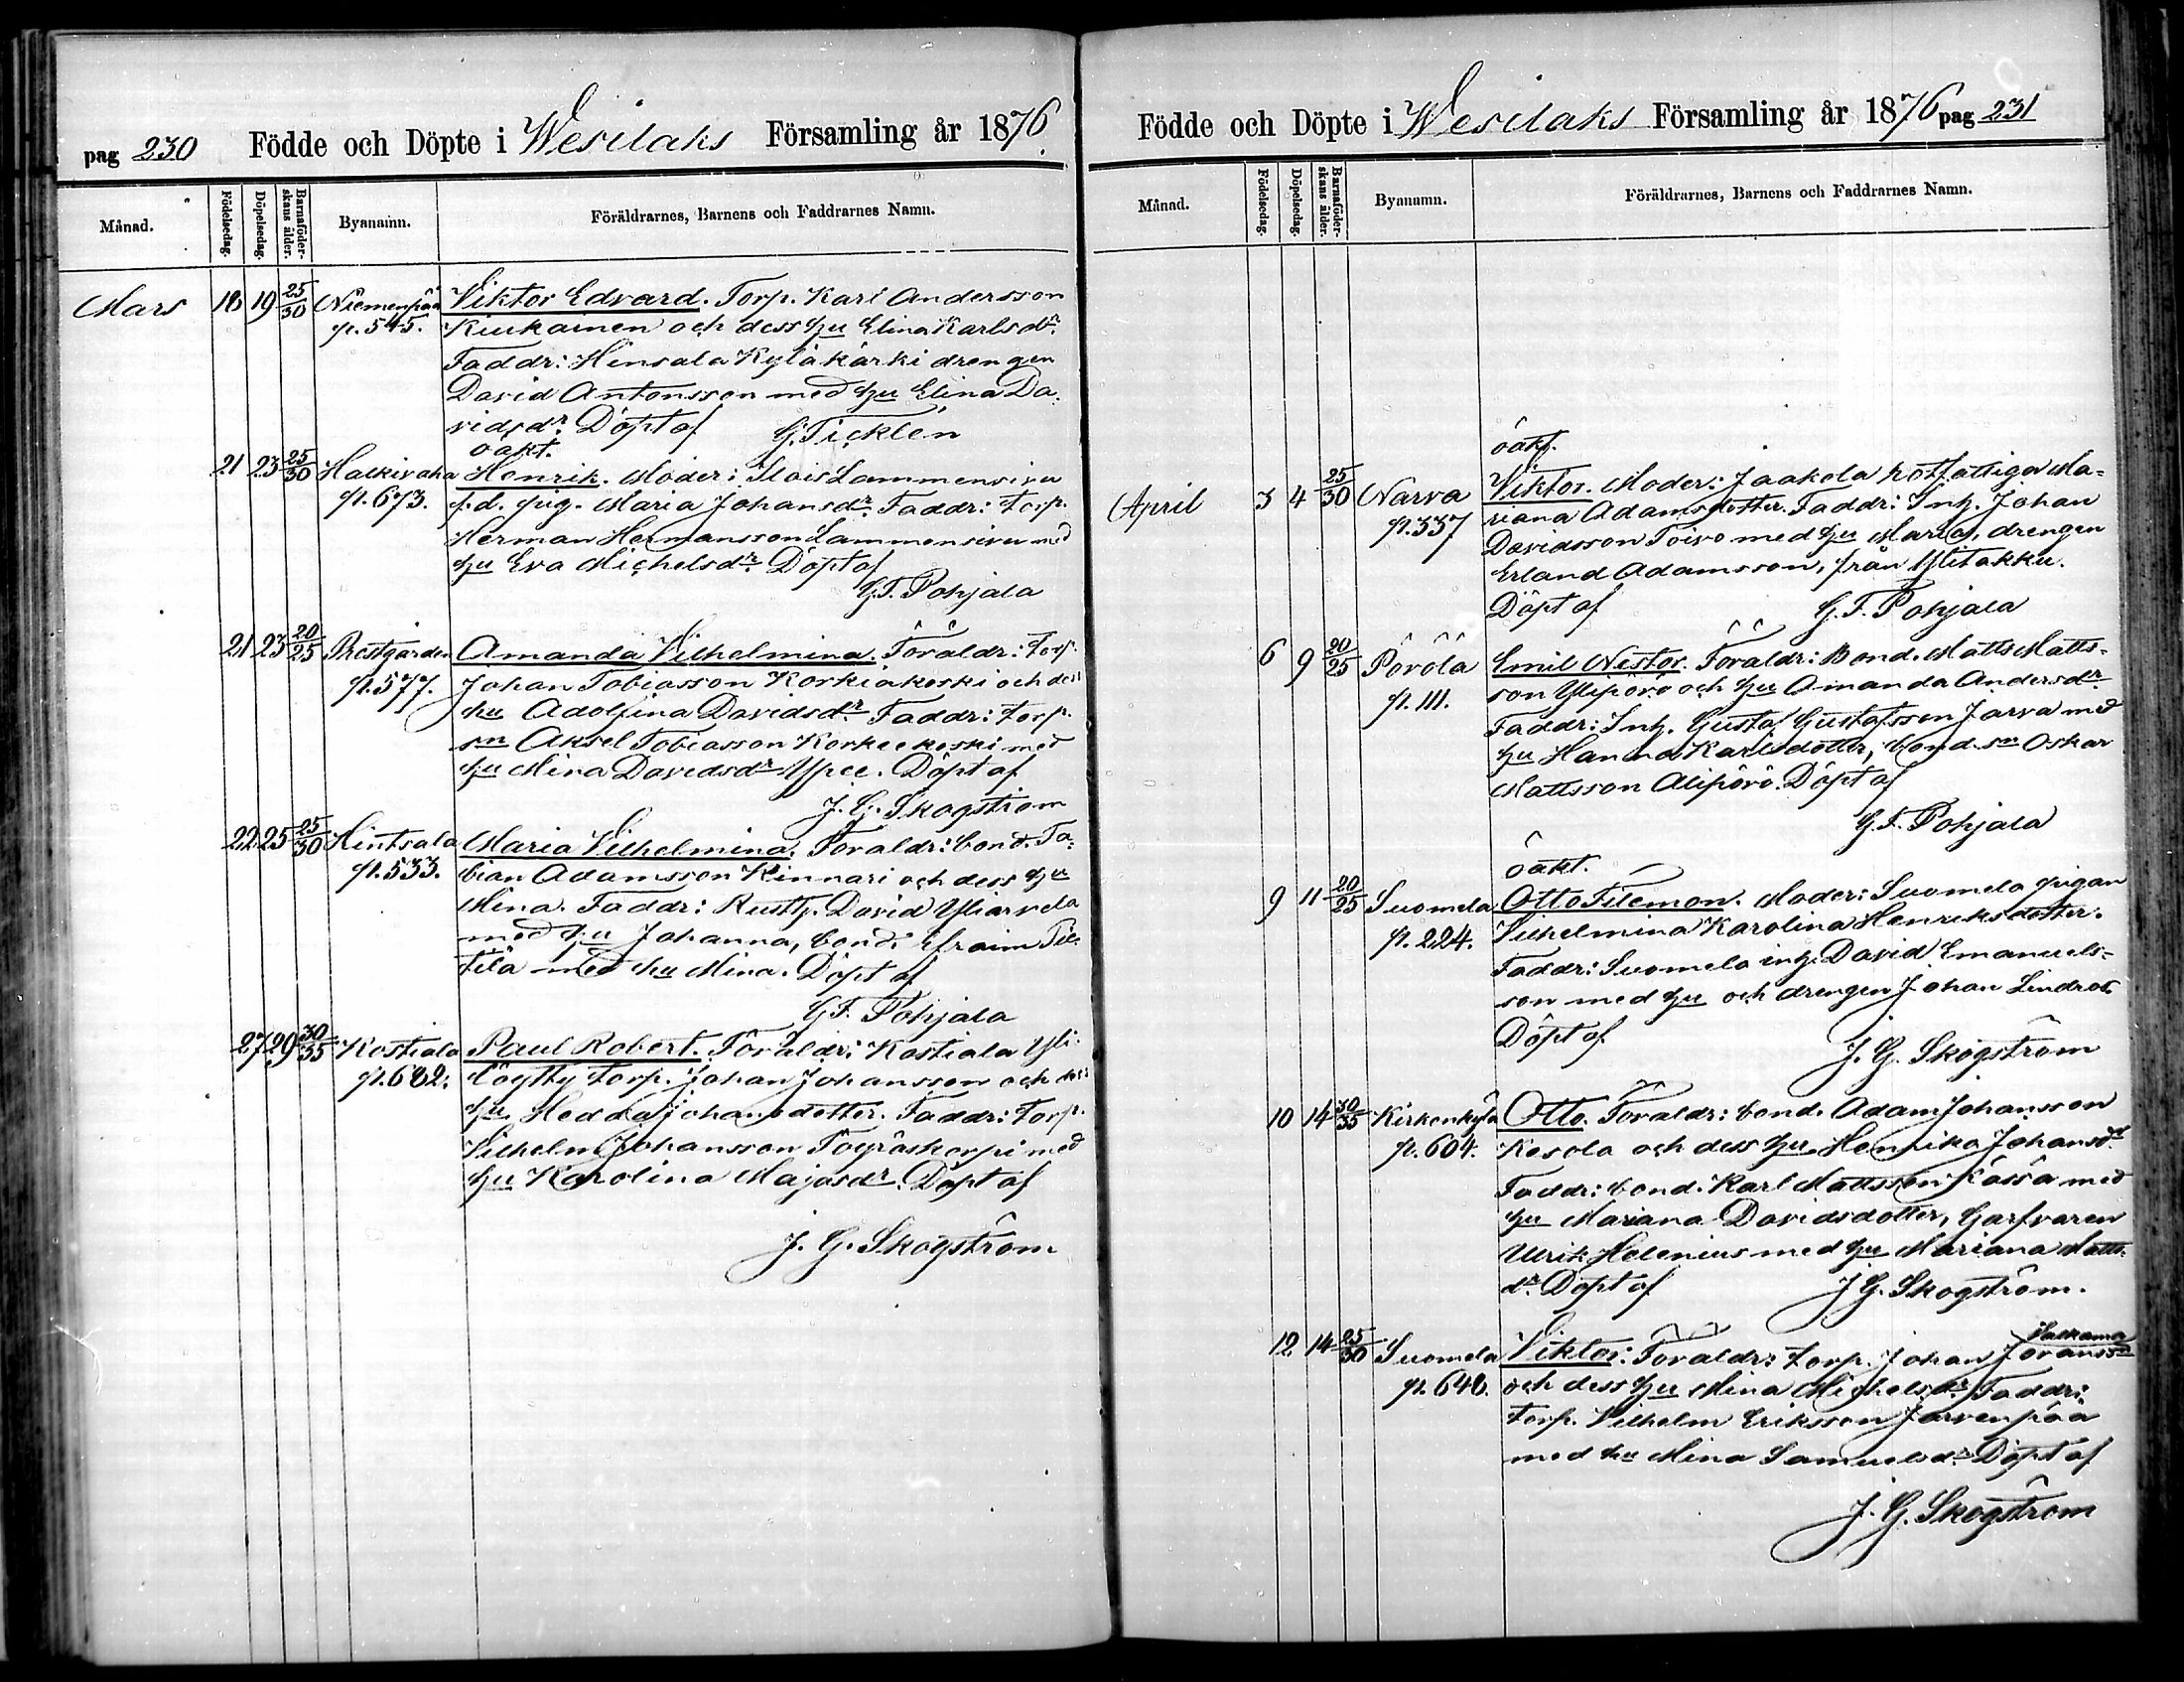 pag 230 Födde och Döpte i Wesilaks Församling år 1876.
Månad. Födelsedag. Döpelsedag. Barnaföderskans ålder. Byanamn. Föräldrarnes, Barnens och Faddrarnes Namn.
Mars 18 19 25/30 Niemenpää Viktor Edvard. Torp. Karl Andersson
p. 545. Kiukainen och dess hu Elina Karlsdr.
Faddr: Hinsala Kyläkärki drengen
David Antonsson med hu Elina Da-
vidsdr. Döpt af G. Ticklén
oäkt.
21 23 25/30 Halkivaha Henrik. Moder: Lammensivu
p. 673. f.d. pig. Maria Johansdr. Faddr: Torp.
Herman Hermansson Lammensivu med
hu Eva Michelsdr. Döpt af
G.F. Pohjala
21 23 20/25 Prestgården Amanda Vilhelmina. Föräldr: Torp.
p. 577. Johan Tobiasson Korkiakoski och dess
hu Adolfina Davidsdr. Faddr: Torp.
sn Aksel Tobiasson Korkeekoski med
hu Mina Davidsdr Döpt af
J. G. Skogström
22 25 25/30 Hintsala Maria Vilhelmina. Föräldr: bond. To-
p. 533. bian Adamsson Kinnari och dess hu
Mina. Faddr: Rusth. David Yliarvela
med hu Johanna, bond. Efraim Til-
tilä med hu Mina. Döpt af
G.F. Pohjala
27 29 30/35 Kostiala Paul Robert. Föräldr: Kostiala Yli-
p. 682. löytty torp. Johan Johansson och dess
hu Hedda Johansdotter. Faddr: Torp.
Vilhelm Johansson Töyräskorpi med
hu Karolina Majasdr. Döpt af
J. G. Skogström
Födde och Döpte i Wesilaks Församling år 1876 pag 231
Månad. Födelsedag. Döpelsedag. Barnaföderskans ålder. Byanamn. Föräldrarnes, Barnens och Faddrarnes Namn.
oäkt.
April 3 4 25/30 Narva Viktor. Moder: Jaakola rotfattiga Ma-
p. 337 riana Adamsdotter. Faddr: Inh. Johan
Davidsson Toivo med hu Maria, drengen
Erland Adamsson, från Ylitakku.
Döpt af G. F. Pohjala
6 9 20/25 Pöröla Emil Nestor. Föräldr: Bond. Matts Matts-
p. 111. son Ylipörö och hu Amanda Andersdr
Faddr: Inh. Gustaf Gustafsson Jarva med
hu Hanna Karlsdotter, bond. sn Oskar
Mattsson Alipörö. Döpt af
G.F. Pohjala
oäkt.
9 11 20/25 Suomela Otto Filemon. Moder: Suomela pigan
p. 224. Vilhelmina Karolina Henriksdotter.
Faddr: Suomela inh. David Emanuels-
son med hu och drengen Johan Lindros.
Döpt af J. G. Skogström
10 14 30/35 Kirkonkylä Otto. Föräldr: bond. Adam Johansson
p. 604. Kesola och dess hu Henrika Johansdr
Faddr: bond. Karl Mattsson Jässä med
hu Mariana Davidsdotter, Garfvaren
Ulrik Helenius med hu Mariana Matts-
dr. Döpt af J G. Skogström.
12 14 25/30 Suomela Viktor. Föräldr: torp. Johan Joransson
p. 648. och dess hu Mina Michelsdr. Faddr:
Torp. Vilhelm Eriksson Järvenpää
med hu Mina Samuelsdr. Döpt af
J. G. Skogström